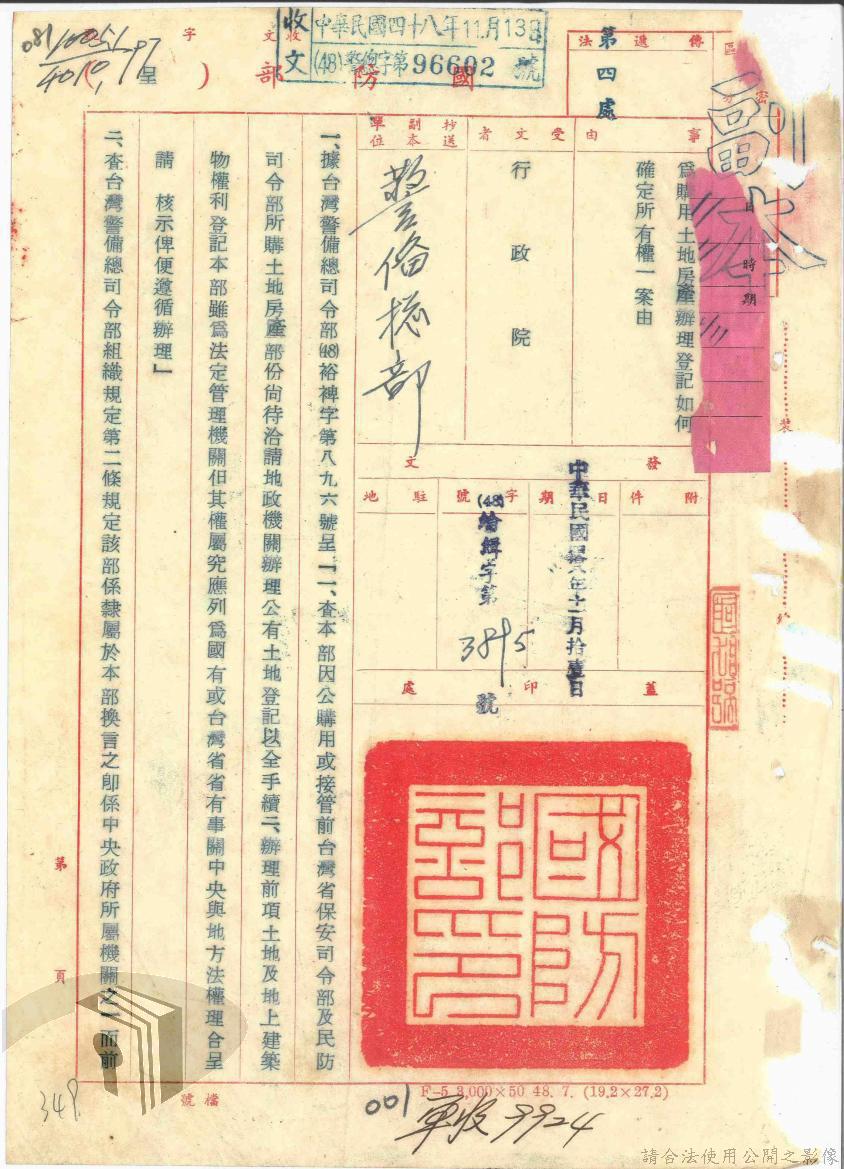 中華民國四十八年11月13日
收文 (48)警備字第96602號
呈
國防部(
)字文收
傳遞法
第四處
事由
為購用土地房產辦理登記如何
確定所有權一案由
受文者
行政院
抄送副本單位
警備總部
日 時期
發文
附件
日期
中華民國四八年十一月拾壹日
字號
(48)
字第3895號
駐地
蓋印處
國防部印
一、據台灣警備總司令部(48)裕裨字第八九六號呈「一、查本部因公購用或接管前台灣省保安司令部及民防
司令部所購土地房產部份尚待洽請地政機關辦理公有土地登記以全手續二、辦理前項土地及地上建築
物權利登記本部雖為法定管理機關但其權屬究應列為國有或台灣省省有事關中央與地方法權理合呈
請 核示俾便遵循辦理」
二、查台灣警備總司令部組織規定第二條規定該部係隸屬於本部換言之即係中央政府所屬機關之一而前
第 頁
裝
檔號
348
001
F-5 3,000×50 48. 7. (19.2×27.2)
軍收9924
請合法使用公開之影像